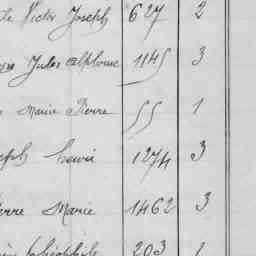 Victor Joseph 627 2
Jules Alphonse 1145 3
Marie Pierre 55 1
Joseph Henri 1274 3
Pierre Marie 1462 3
Théophile 203 1